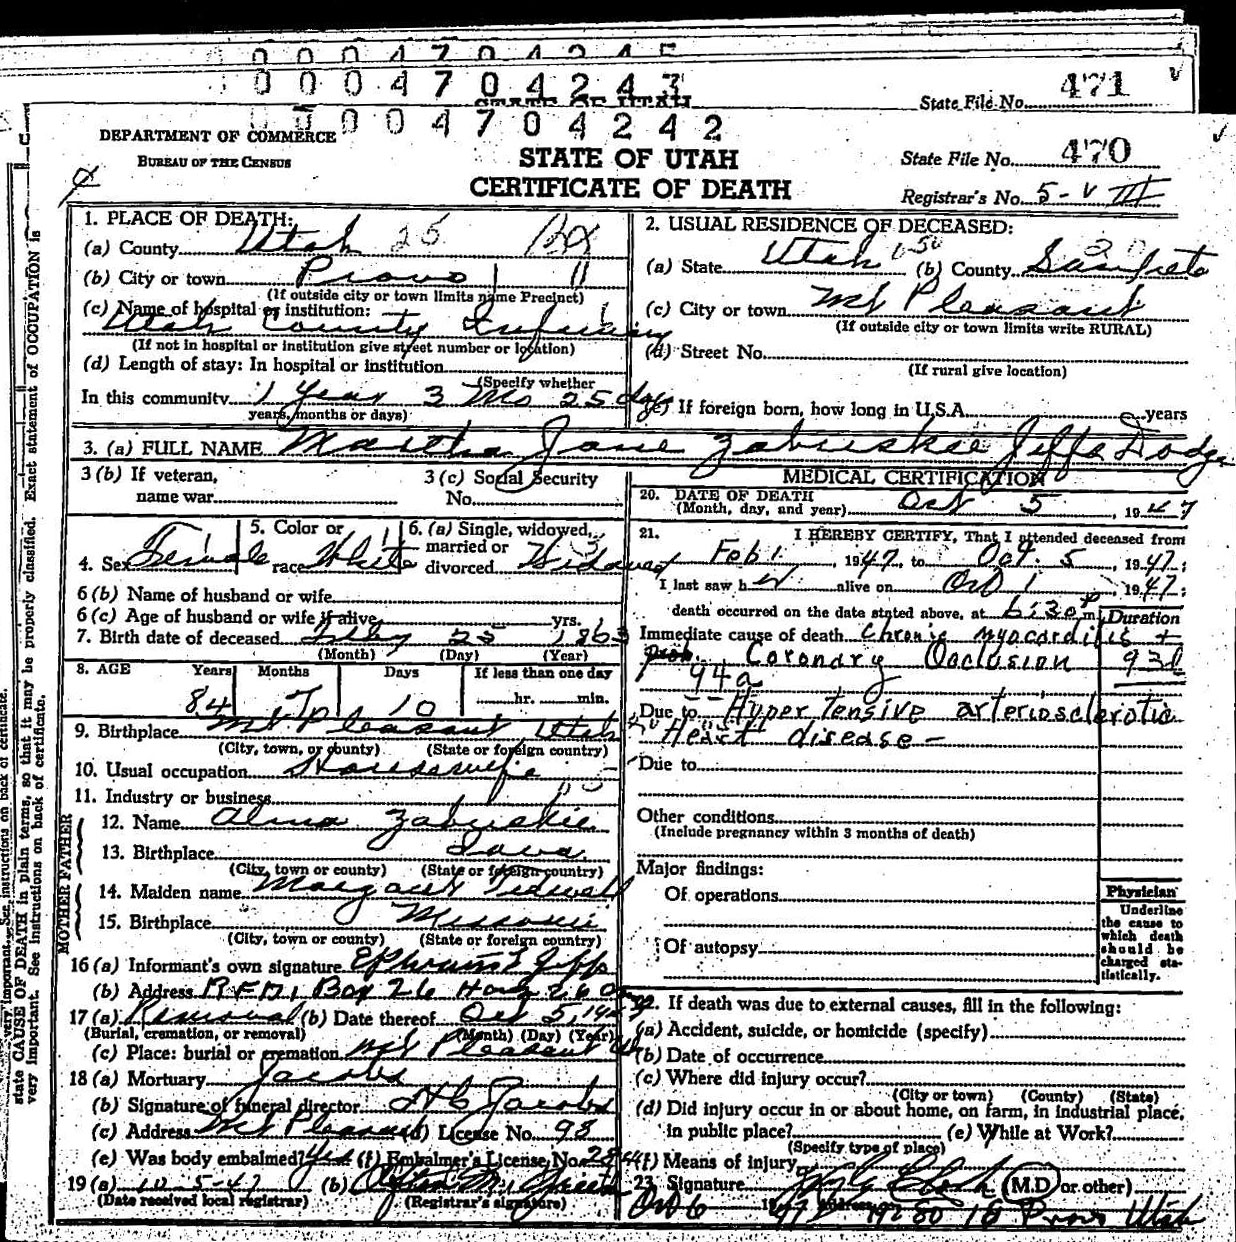 0 0 0 4 7 0 4 2 4 5
0 0 0 4 7 0 4 2 4 3
STATE OF UTAH
State File No. 471
0 0 0 4 7 0 4 2 4 2
DEPARTMENT OF COMMERCE
BUREAU OF THE CENSUS
STATE OF UTAH
CERTIFICATE OF DEATH
State File No. 470
Registrar's No. 5-V III
1. PLACE OF DEATH:
(a) County Utah 25
(b) City or town Provo 11
(If outside city or town limits name Precinct)
(c) Name of hospital or institution:
Utah County Infirmary
(If not in hospital or institution give street number or location)
(d) Length of stay: In hospital or institution
(Specify whether
In this community 1 Year 3 Mo 25 days
years, months or days)
2. USUAL RESIDENCE OF DECEASED:
(a) State Utah (b) County Sanpete 20
(c) City or town Mt Pleasant
(If outside city or town limits write RURAL)
(d) Street No.
(If rural give location)
(e) If foreign born, how long in U.S.A. years
3. (a) FULL NAME Martha Jane Zabriskie Jeffs Dodge
3 (b) If veteran,
name war
3 (c) Social Security
No.
4. Sex Female
5. Color or
race White
6. (a) Single, widowed,
married or
divorced Widowed
6 (b) Name of husband or wife
6 (c) Age of husband or wife if alive yrs.
7. Birth date of deceased Feby 25 1863
(Month) (Day) (Year)
8. AGE Years Months Days If less than one day
84 7 10 hr. min.
9. Birthplace Mt Pleasant Utah
(City, town, or county) (State or foreign country)
10. Usual occupation Housewife
11. Industry or business
FATHER
12. Name Alma Zabriskie
13. Birthplace Iowa
(City, town or county) (State or foreign country)
MOTHER
14. Maiden name Margaret Tidwell
15. Birthplace Missouri
(City, town or county) (State or foreign country)
16 (a) Informant's own signature Ephraim E Jeffs
(b) Address R.F.D. 1 Box 26
17 (a) Removal (b) Date thereof Oct 5, 1947
(Burial, cremation, or removal) (Month) (Day) (Year)
(c) Place: burial or cremation Mt Pleasant Ut
18 (a) Mortuary Jacobs
(b) Signature of funeral director Jacobs
(c) Address Mt Pleasant (d) License No. 98
(e) Was body embalmed? Yes (f) Embalmer's License No.
19 (a) 10-5-47 (b)
(Date received local registrar) (Registrar's signature)
MEDICAL CERTIFICATION
20. DATE OF DEATH
(Month, day, and year) Oct 5, 1947
21. I HEREBY CERTIFY, That I attended deceased from
Feb 1, 1947, to Oct. 5, 1947;
I last saw her alive on Oct 1, 1947;
death occurred on the date stated above, at 6:30 P m
Duration
Immediate cause of death Chronic myocarditis +
prob. Coronary Occlusion 93d
94a
Due to Hypertensive arteriosclerotic
Heart disease -
Due to
Other conditions
(Include pregnancy within 3 months of death)
Major findings:
Of operations
Of autopsy
Physician
Underline
the cause to
which death
should be
charged sta-
tistically.
22. If death was due to external causes, fill in the following:
(a) Accident, suicide, or homicide (specify)
(b) Date of occurrence
(c) Where did injury occur?
(City or town) (County) (State)
(d) Did injury occur in or about home, on farm, in industrial place,
in public place? (e) While at Work?
(Specify type of place)
(f) Means of injury
23. Signature Clark (M.D. or other)
Oct 6 1947 Provo Utah
state CAUSE OF DEATH in plain terms, so that it may be properly classified. Exact statement of OCCUPATION is
very important. See instructions on back of certificate.